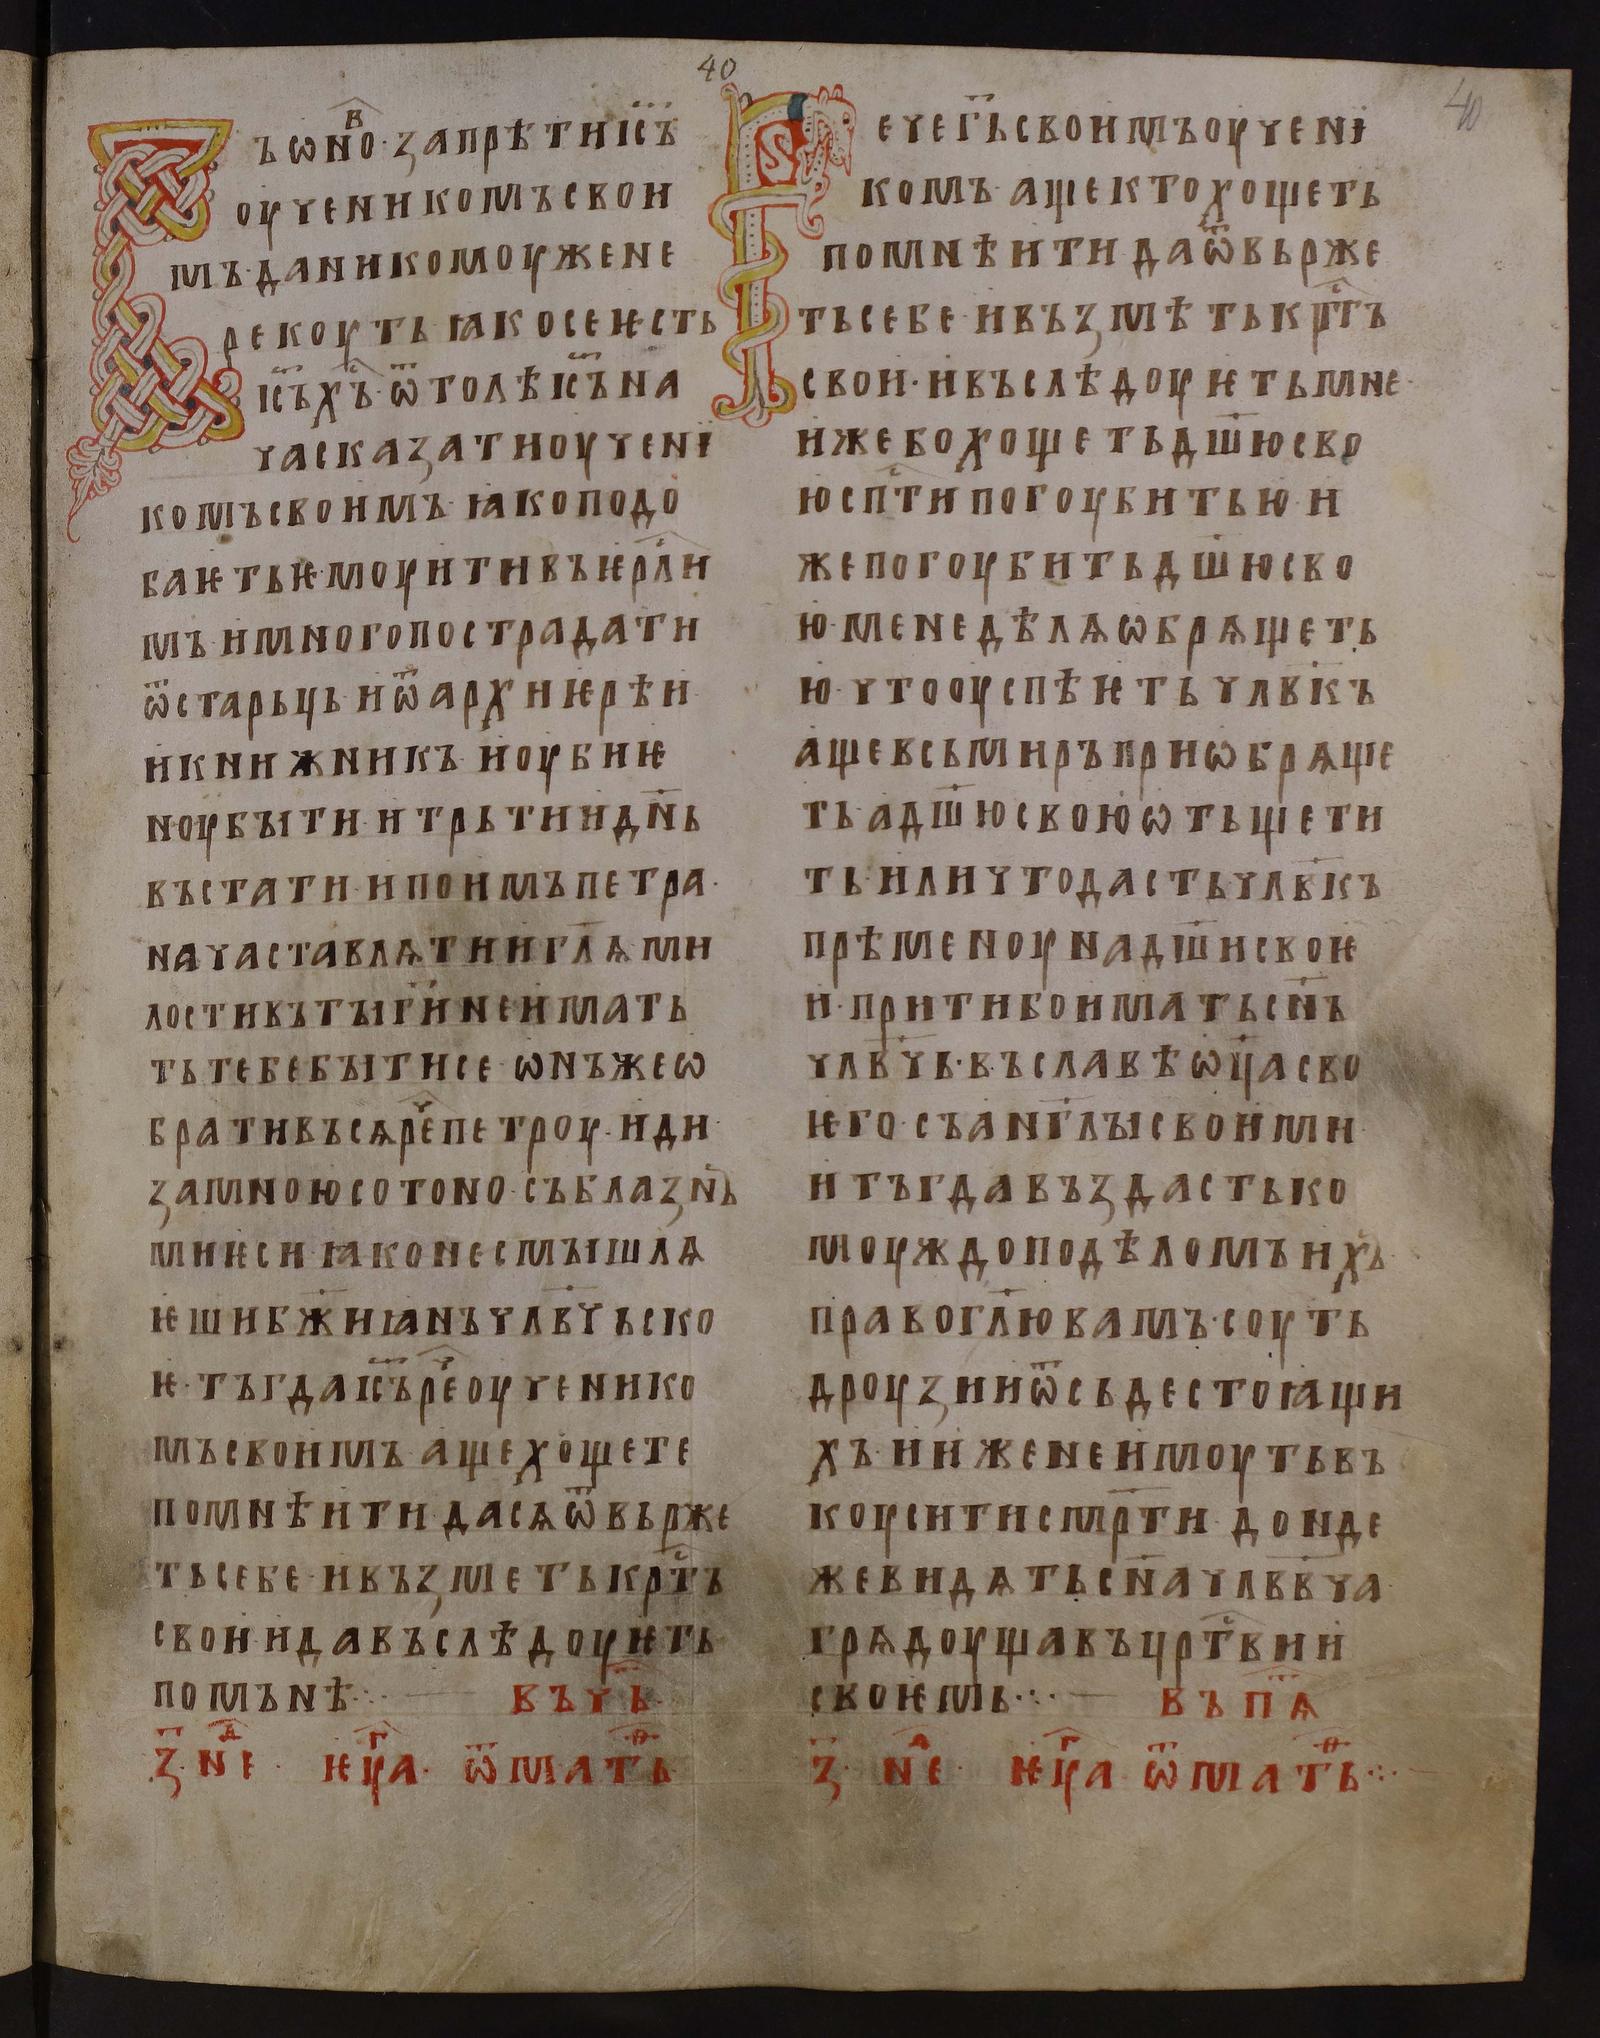 40
40
Въ ѡн҇о · запрѣти іс҃ъ
оученикомъ свои
мъ · да никомоу же не
рекоуть · ꙗко се ѥсть
іс҃ъ х҃ъ · ѿтолѣ іс҃ъ на
ча сказати оучені
комъ своимъ · ꙗко подо
баѥть ѥмоу ити въ ѥрⷭ҇ли
мъ · и много пострадати
ѿ старьць · и ѿ архиѥрѣи
и книжникъ · и оубиѥ
ноу быти · и трьтии дн҃ь
въстати · и поимъ петра ·
нача ставлѧти и гл҃ѧ ми
лостивъ ты г҃и не имать
ть тебе быти се · ѡнъ же ѡ
брати въсѧ реⷱ҇ петроу · иди
за мною сотоно · съблазнъ
ми ѥси · ꙗко не смышлѧ
ѥши бж҃иꙗ нъ члв҃чьско
ѥ · тъгда іс҃ъ реⷱ҇ оученико
мъ своимъ · аще хощете
по мнѣ ити · да сѧ ѿвърже
ть себе · и възметь крⷭ҇тъ
свои · и да въслѣдоуѥть
по мънѣ ⁘ въ чⷮь
з҃ · нⷣе · ѥѵⷢ҇а · ѿ матⷴь
Рече г҃ь своимъ оучені
комъ · аще кто хощеть
по мнѣ ити · да ѿвьрже
ть себе · и възмѣть крⷭ҇тъ
свои · и въслѣдоуѥть мне ·
иже бо хощеть дш҃ю сво
ю спⷭ҇ти погоубить ю · и
же погоубить дш҃ю сво
ю · мене дѣлѧ ѡбрѧщеть
ю · что оуспѣѥть члв҃къ
аще всь миръ приѡбрѧще
ть · а дш҃ю свою ѡтьщети
ть · или что дасть члв҃къ
прѣменоу на дш҃и своѥ
и · прити бо имать сн҃ъ
члв҃чь · въ славѣ ѡц҃а сво
ѥго · съ анг҃лы своими
и тъгда въздасть ко
моуждо по дѣломъ ихъ ·
право гл҃ю вамъ · соуть
дроузии ѿ сьде стоꙗщи
хъ · ииже не имоуть въ
коусити смр҃ти · донде
же видѧть сн҃а члв҃вча
грѧдоуща въ цр҃твии
своѥмь ⁘ въ пѧⷮ
з҃ · нⷣе · ѥѵⷢ҇а · ѿ матⷴь ⁘